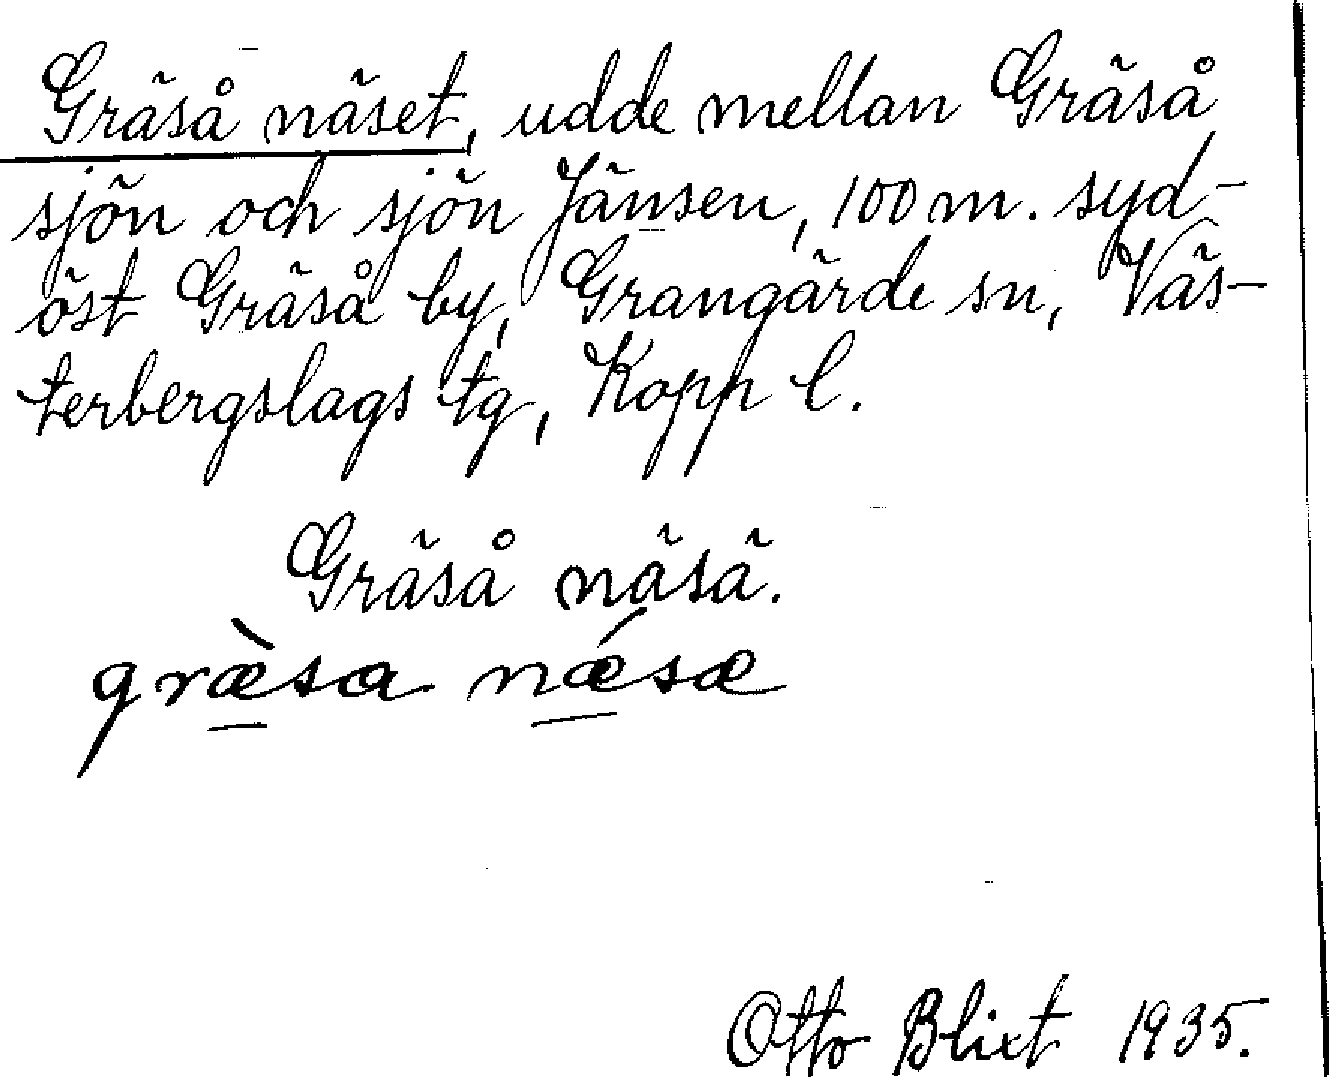 Gräså näset, udde mellan Gräså
sjön och sjön Jänsen, 100 m. syd-
öst Gräså by, Grangärde sn, Väs-
terbergslags tg, Kopp l.
Gräså näsä.
græ̀sa nǽsæ
Otto Blixt 1935.